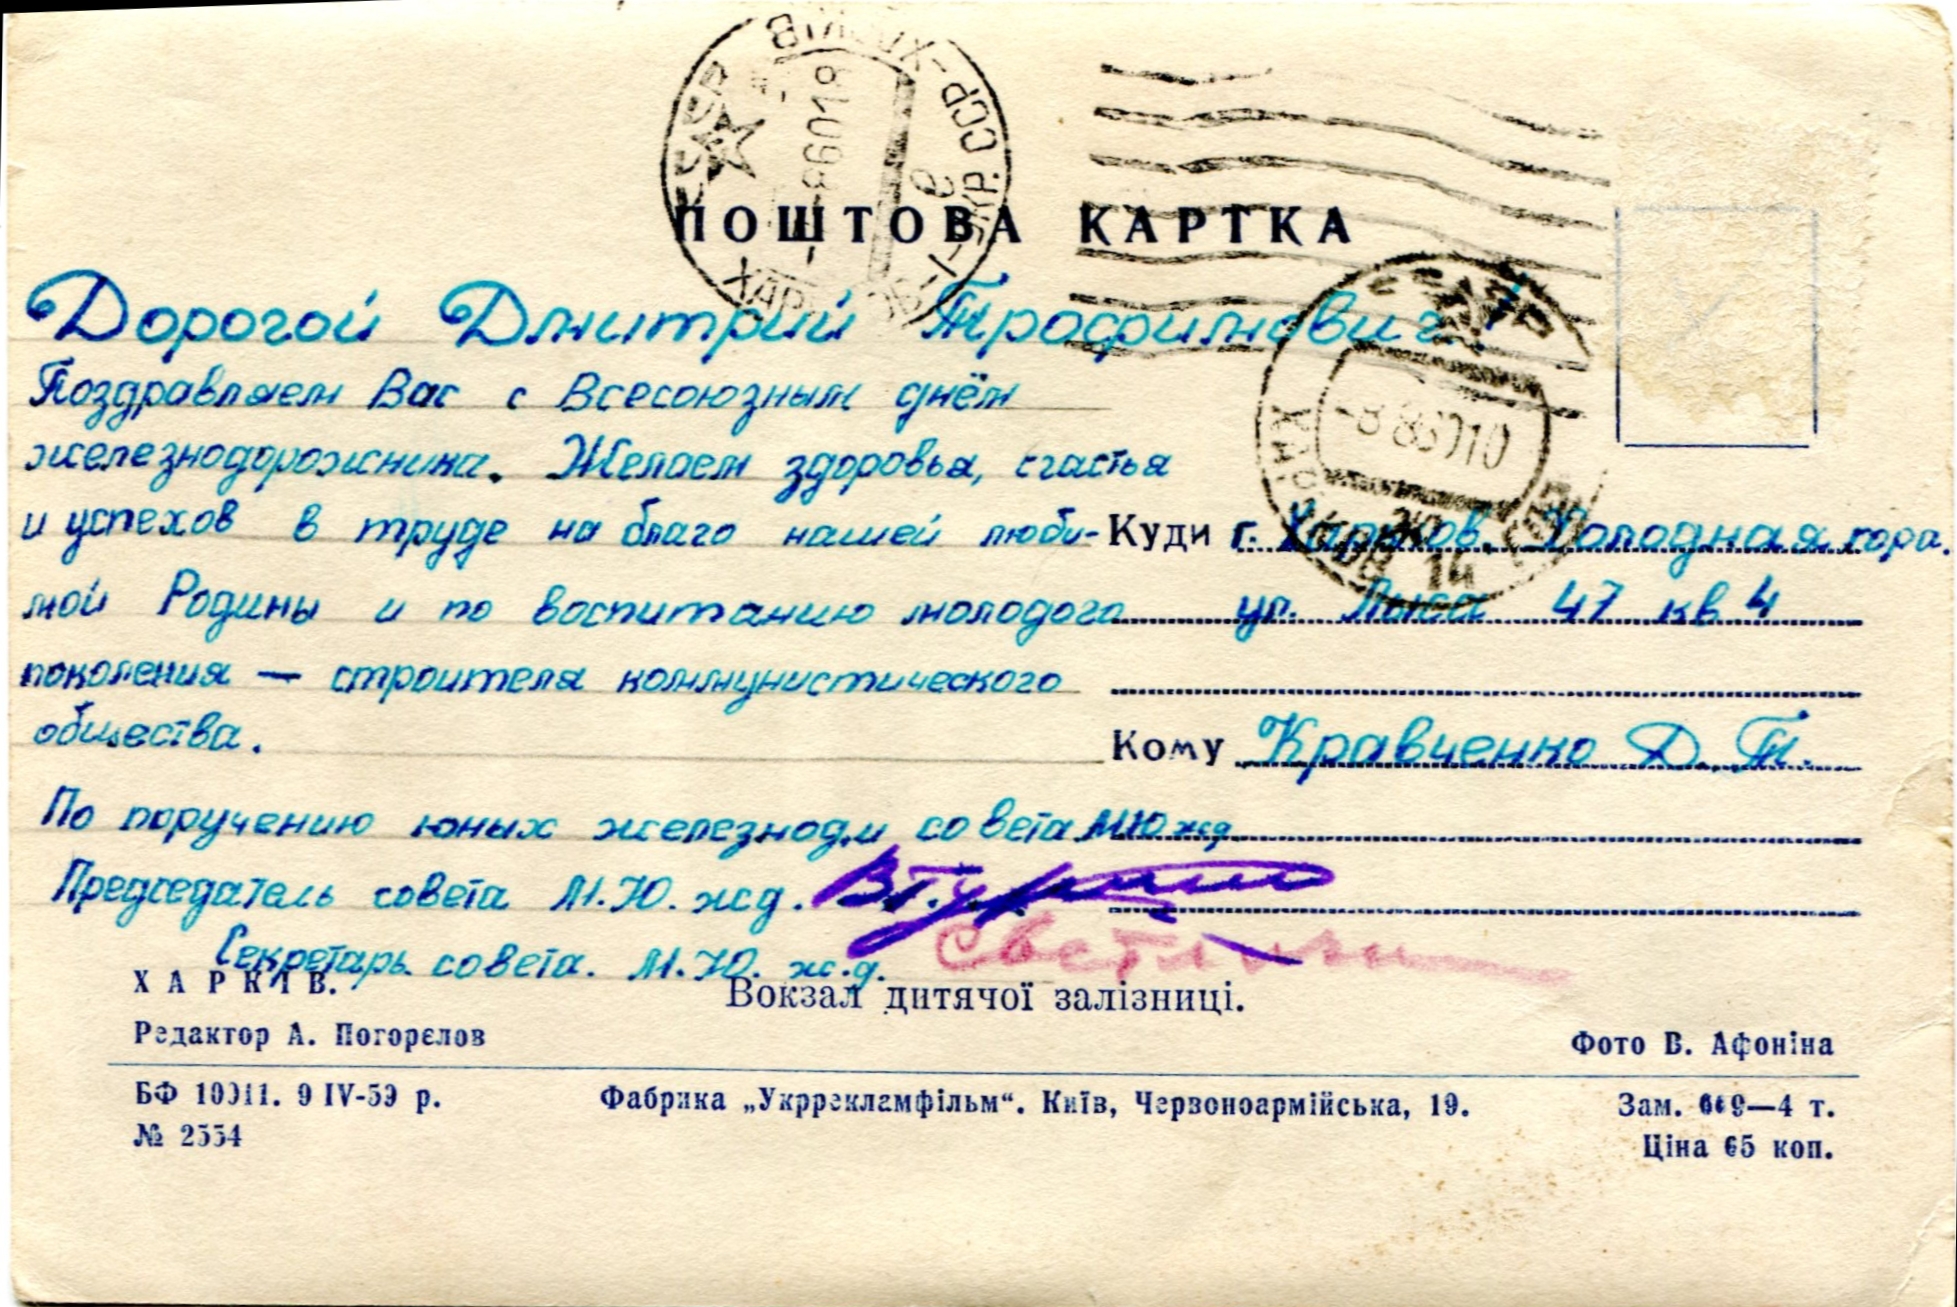 ПОШТОВА КАРТКА
Дорогой Дмитрий Трофимович!
Поздравляем Вас с Всесоюзным днём
железнодорожника. Желаем здоровья, счастья
и успехов в труде на благо нашей люби-
мой Родины и по воспитанию молодого
поколения — строителя коммунистического
общества.
По поручению юных железнод. и совета МЮжд
Председатель совета М.Ю.жд.
Секретарь совета. М.Ю. ж.д.
Куди г. Харьков, Холодная гора.
ул. 47 кв 4
Кому Кравченко Д. Т.
ХАРКІВ.
Вокзал дитячої залізниці.
Редактор А. Погорєлов
Фото В. Афоніна
БФ 10011. 9 IV-59 р.
Фабрика „Укррекламфільм“. Київ, Червоноармійська, 19.
Зам. 669—4 т.
№ 2554
Ціна 65 коп.